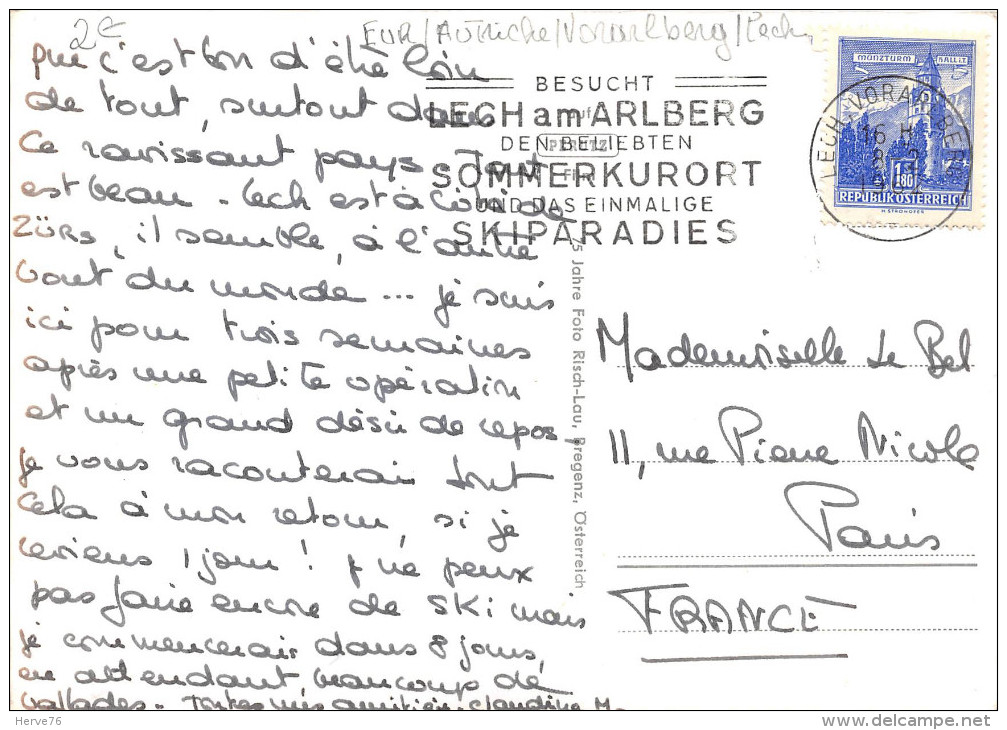 2€
EUR/Autriche/Vorarlberg/Lech
que c'est bon d'être loin
de tout, surtout dans
ce ravissant pays. Tout
est beau. Lech est à côté de
ZÜRS, il semble, à l'autre
bout du monde... je suis
ici pour trois semaines
après une petite opération
et un grand désir de repos,
je vous raconterai tout
cela à mon retour, si je
reviens 1 jour ! je ne peux
pas faire encore de ski mais
je commencerai dans 8 jours,
en attendant, beaucoup de
ballades. Toutes mes amitiés. Claudine M.
BESUCHT
LECH am ARLBERG
DEN BELIEBTEN
SOMMERKURORT
UND DAS EINMALIGE
SKIPARADIES
MÜNZTURM HALL I.T.
1.80
REPUBLIK ÖSTERREICH
H. STROHOFER
LECH, VORARLBERG
75 Jahre Foto Risch-Lau, Bregenz, Österreich
Mademoiselle Le Bel
11, rue Pierre Nicole
Paris
FRANCE
Herve76
www.delcampe.net